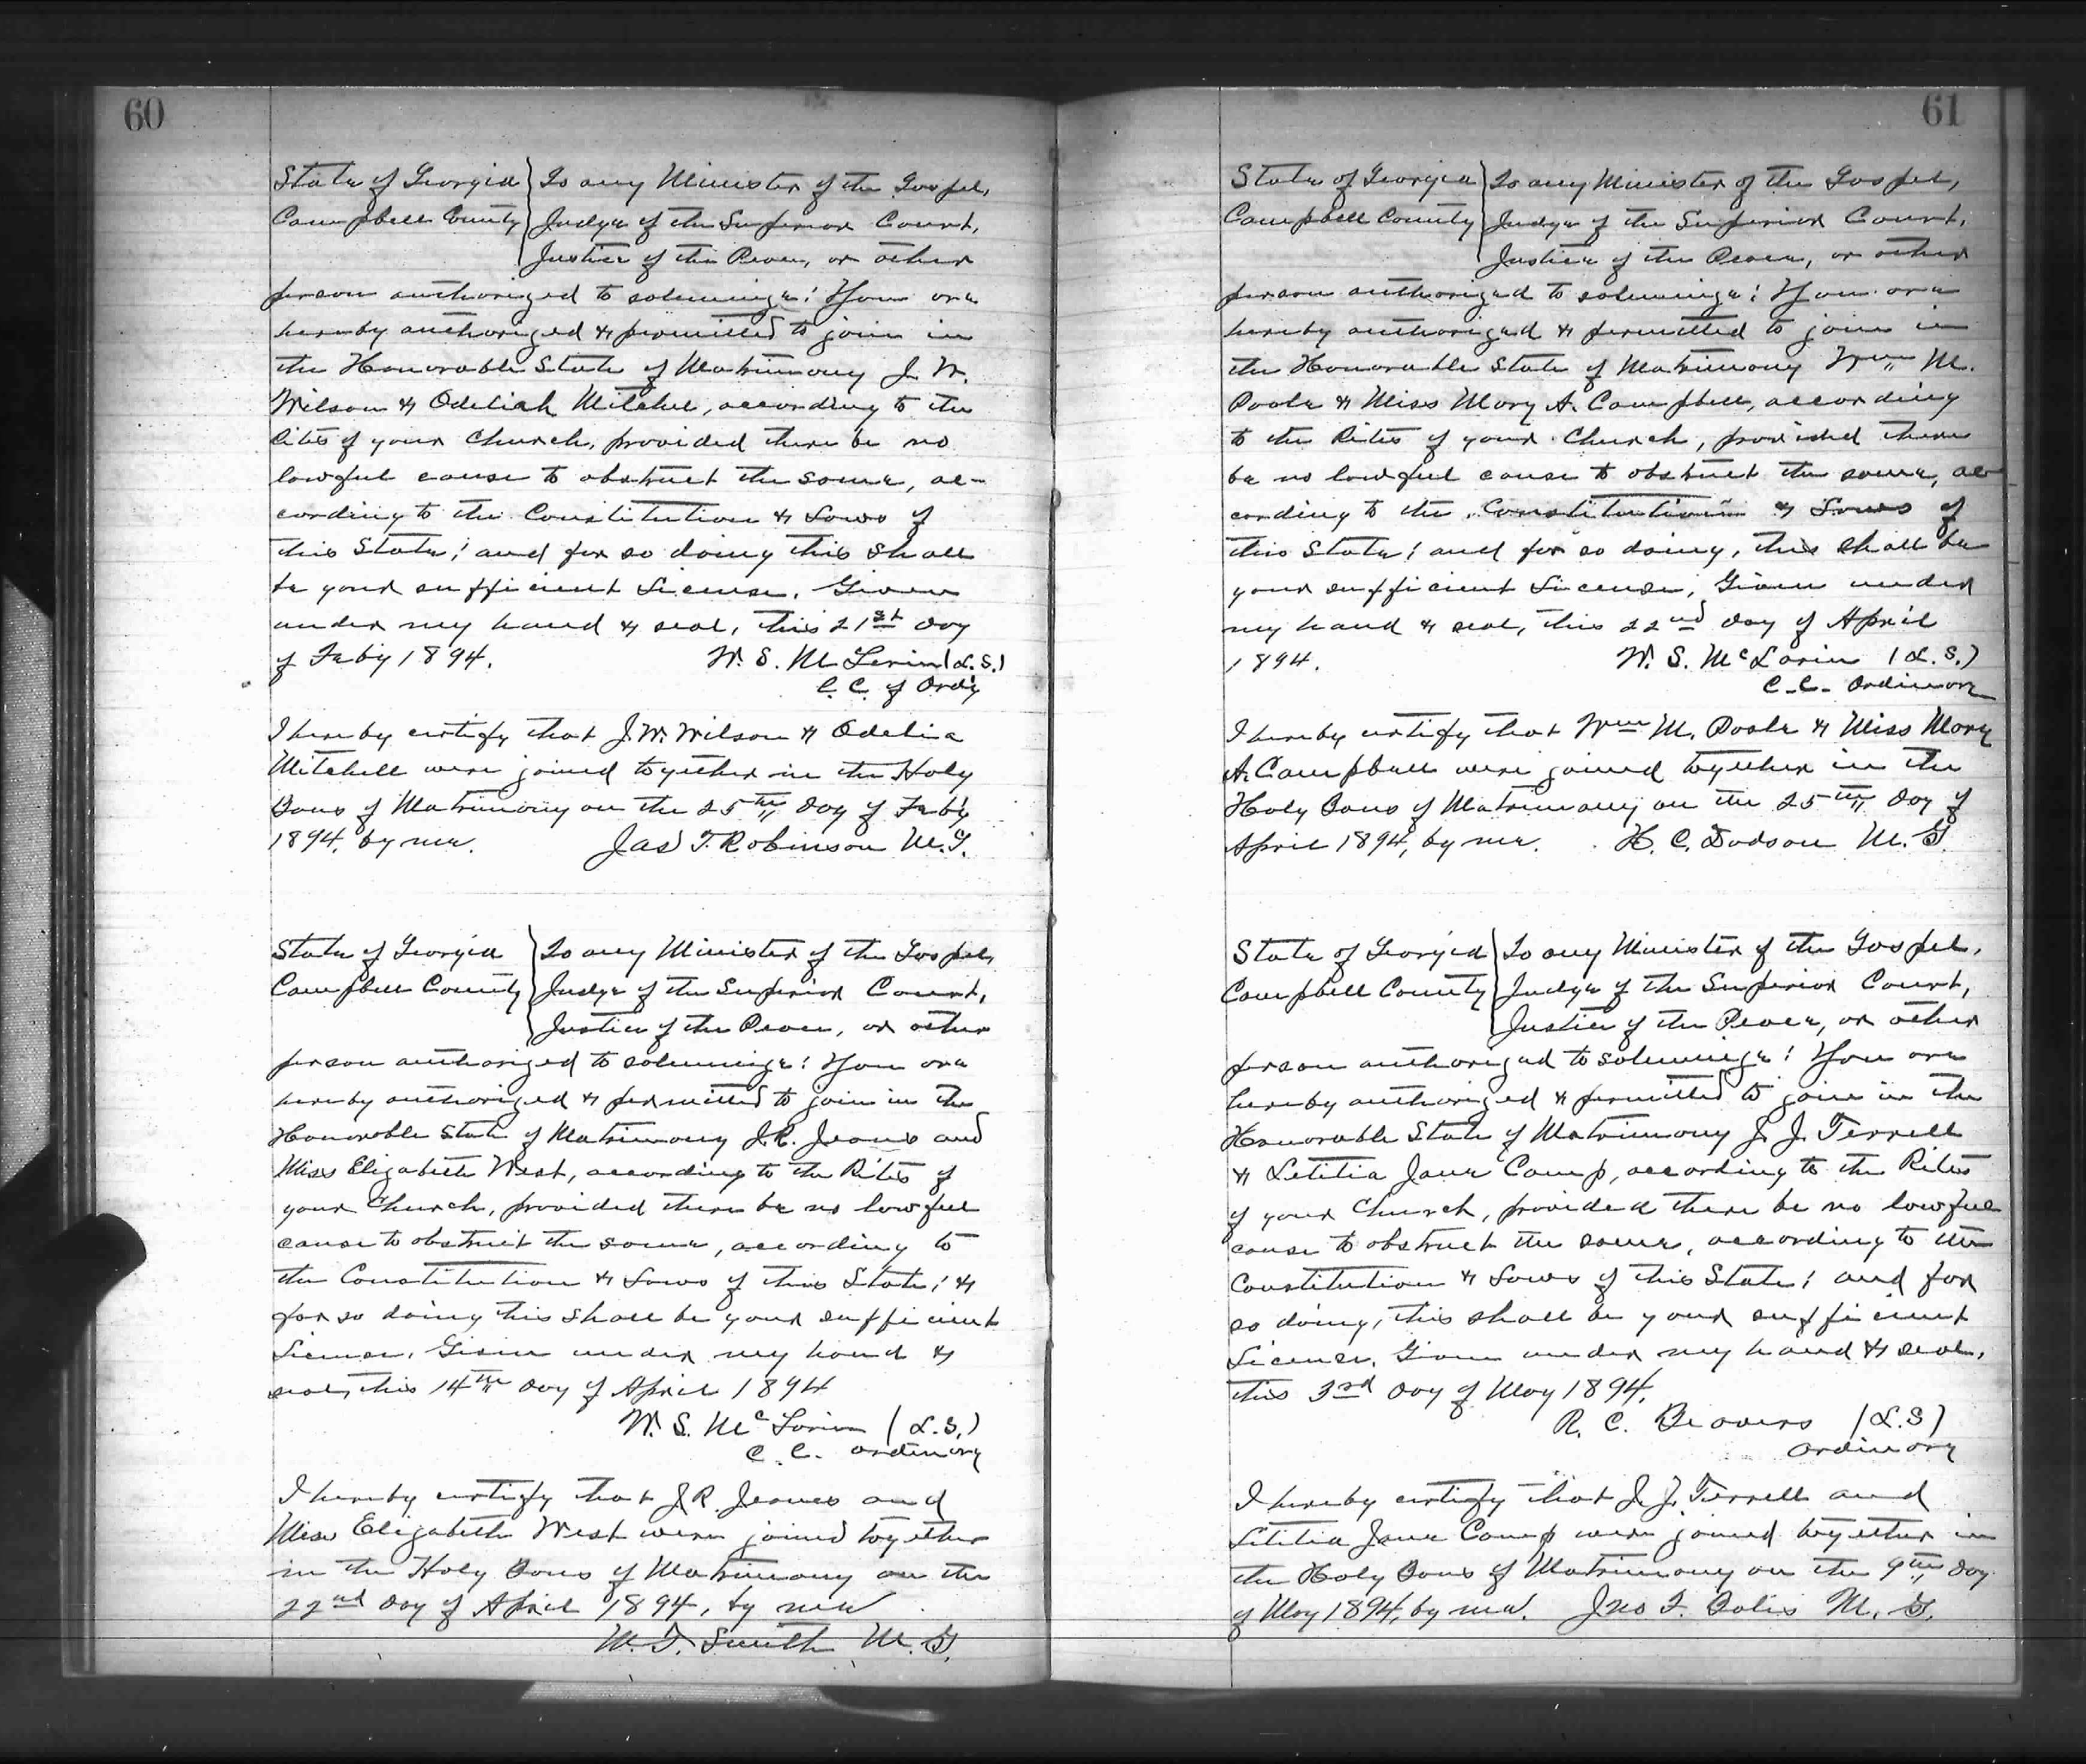 60
State of Georgia } To any Minister of the Gospel,
Campbell County } Judge of the Superior Court,
Justice of the Peace, or other
person authorized to solemnize: You are
hereby authorized & permitted to join in
the Honorable State of Matrimony J. W.
Wilson & Odeliah Mitchel, according to the
Rites of your Church, provided there be no
lawful cause to obstruct the same, ac-
cording to the Constitution & Laws of
this State; and for so doing this shall
be your sufficient License. Given
under my hand & seal, this 21st day
of Feby 1894. W. S. McLarin (L.S.)
C. C. of Ordy
I hereby certify that J. W. Wilson & Odelia
Mitchell were joined together in the Holy
Bans of Matrimony on the 25th day of Feby
1894, by me. Jas T. Robinson M.G.
State of Georgia } To any Minister of the Gospel,
Campbell County } Judge of the Superior Court,
Justice of the Peace, or other
person authorized to solemnize: You are
hereby authorized & permitted to join in the
Honorable State of Matrimony J. R. and
Miss Elizabeth West, according to the Rites of
your Church, provided there be no lawful
cause to obstruct the same, according to
the Constitution & Laws of this State; &
for so doing this shall be your sufficient
License. Given under my hand &
seal, this 14th day of April 1894
W. S. McLarin (L.S.)
C. C. Ordinary
I hereby certify that J. R. and
Miss Elizabeth West were joined together
in the Holy Bans of Matrimony on the
22nd day of April 1894, by me
W. T. Smith M. G.
61
State of Georgia } To any Minister of the Gospel,
Campbell County } Judge of the Superior Court,
Justice of the Peace, or other
person authorized to solemnize: You are
hereby authorized & permitted to join in
the Honorable State of Matrimony Wm M.
Poole & Miss Mary A. Campbell, according
to the Rites of your Church, provided there
be no lawful cause to obstruct the same, ac-
cording to the Constitution & Laws of
this State; and for so doing, this shall be
your sufficient License, Given under
my hand & seal, this 22nd day of April
1894. W. S. McLarin (L.S.)
C. C. Ordinary
I hereby certify that Wm M. Poole & Miss Mary
A. Campbell were joined together in the
Holy Bans of Matrimony on the 25th day of
April 1894, by me. H. C. Dodson M. G.
State of Georgia } To any Minister of the Gospel,
Campbell County } Judge of the Superior Court,
Justice of the Peace, or other
person authorized to solemnize: You are
hereby authorized & permitted to join in the
Honorable State of Matrimony J. J. Terrell
& Letitia Jane Camp, according to the Rites
of your Church, provided there be no lawful
cause to obstruct the same, according to the
Constitution & Laws of this State; and for
so doing, this shall be your sufficient
License. Given under my hand & seal,
this 3rd day of May 1894.
R. C. Beavers (L.S)
Ordinary
I hereby certify that J. J. Terrell and
Letitia Jane Camp were joined together in
the Holy Bans of Matrimony on the 9th day
of May 1894, by me. Jno F. M. G.